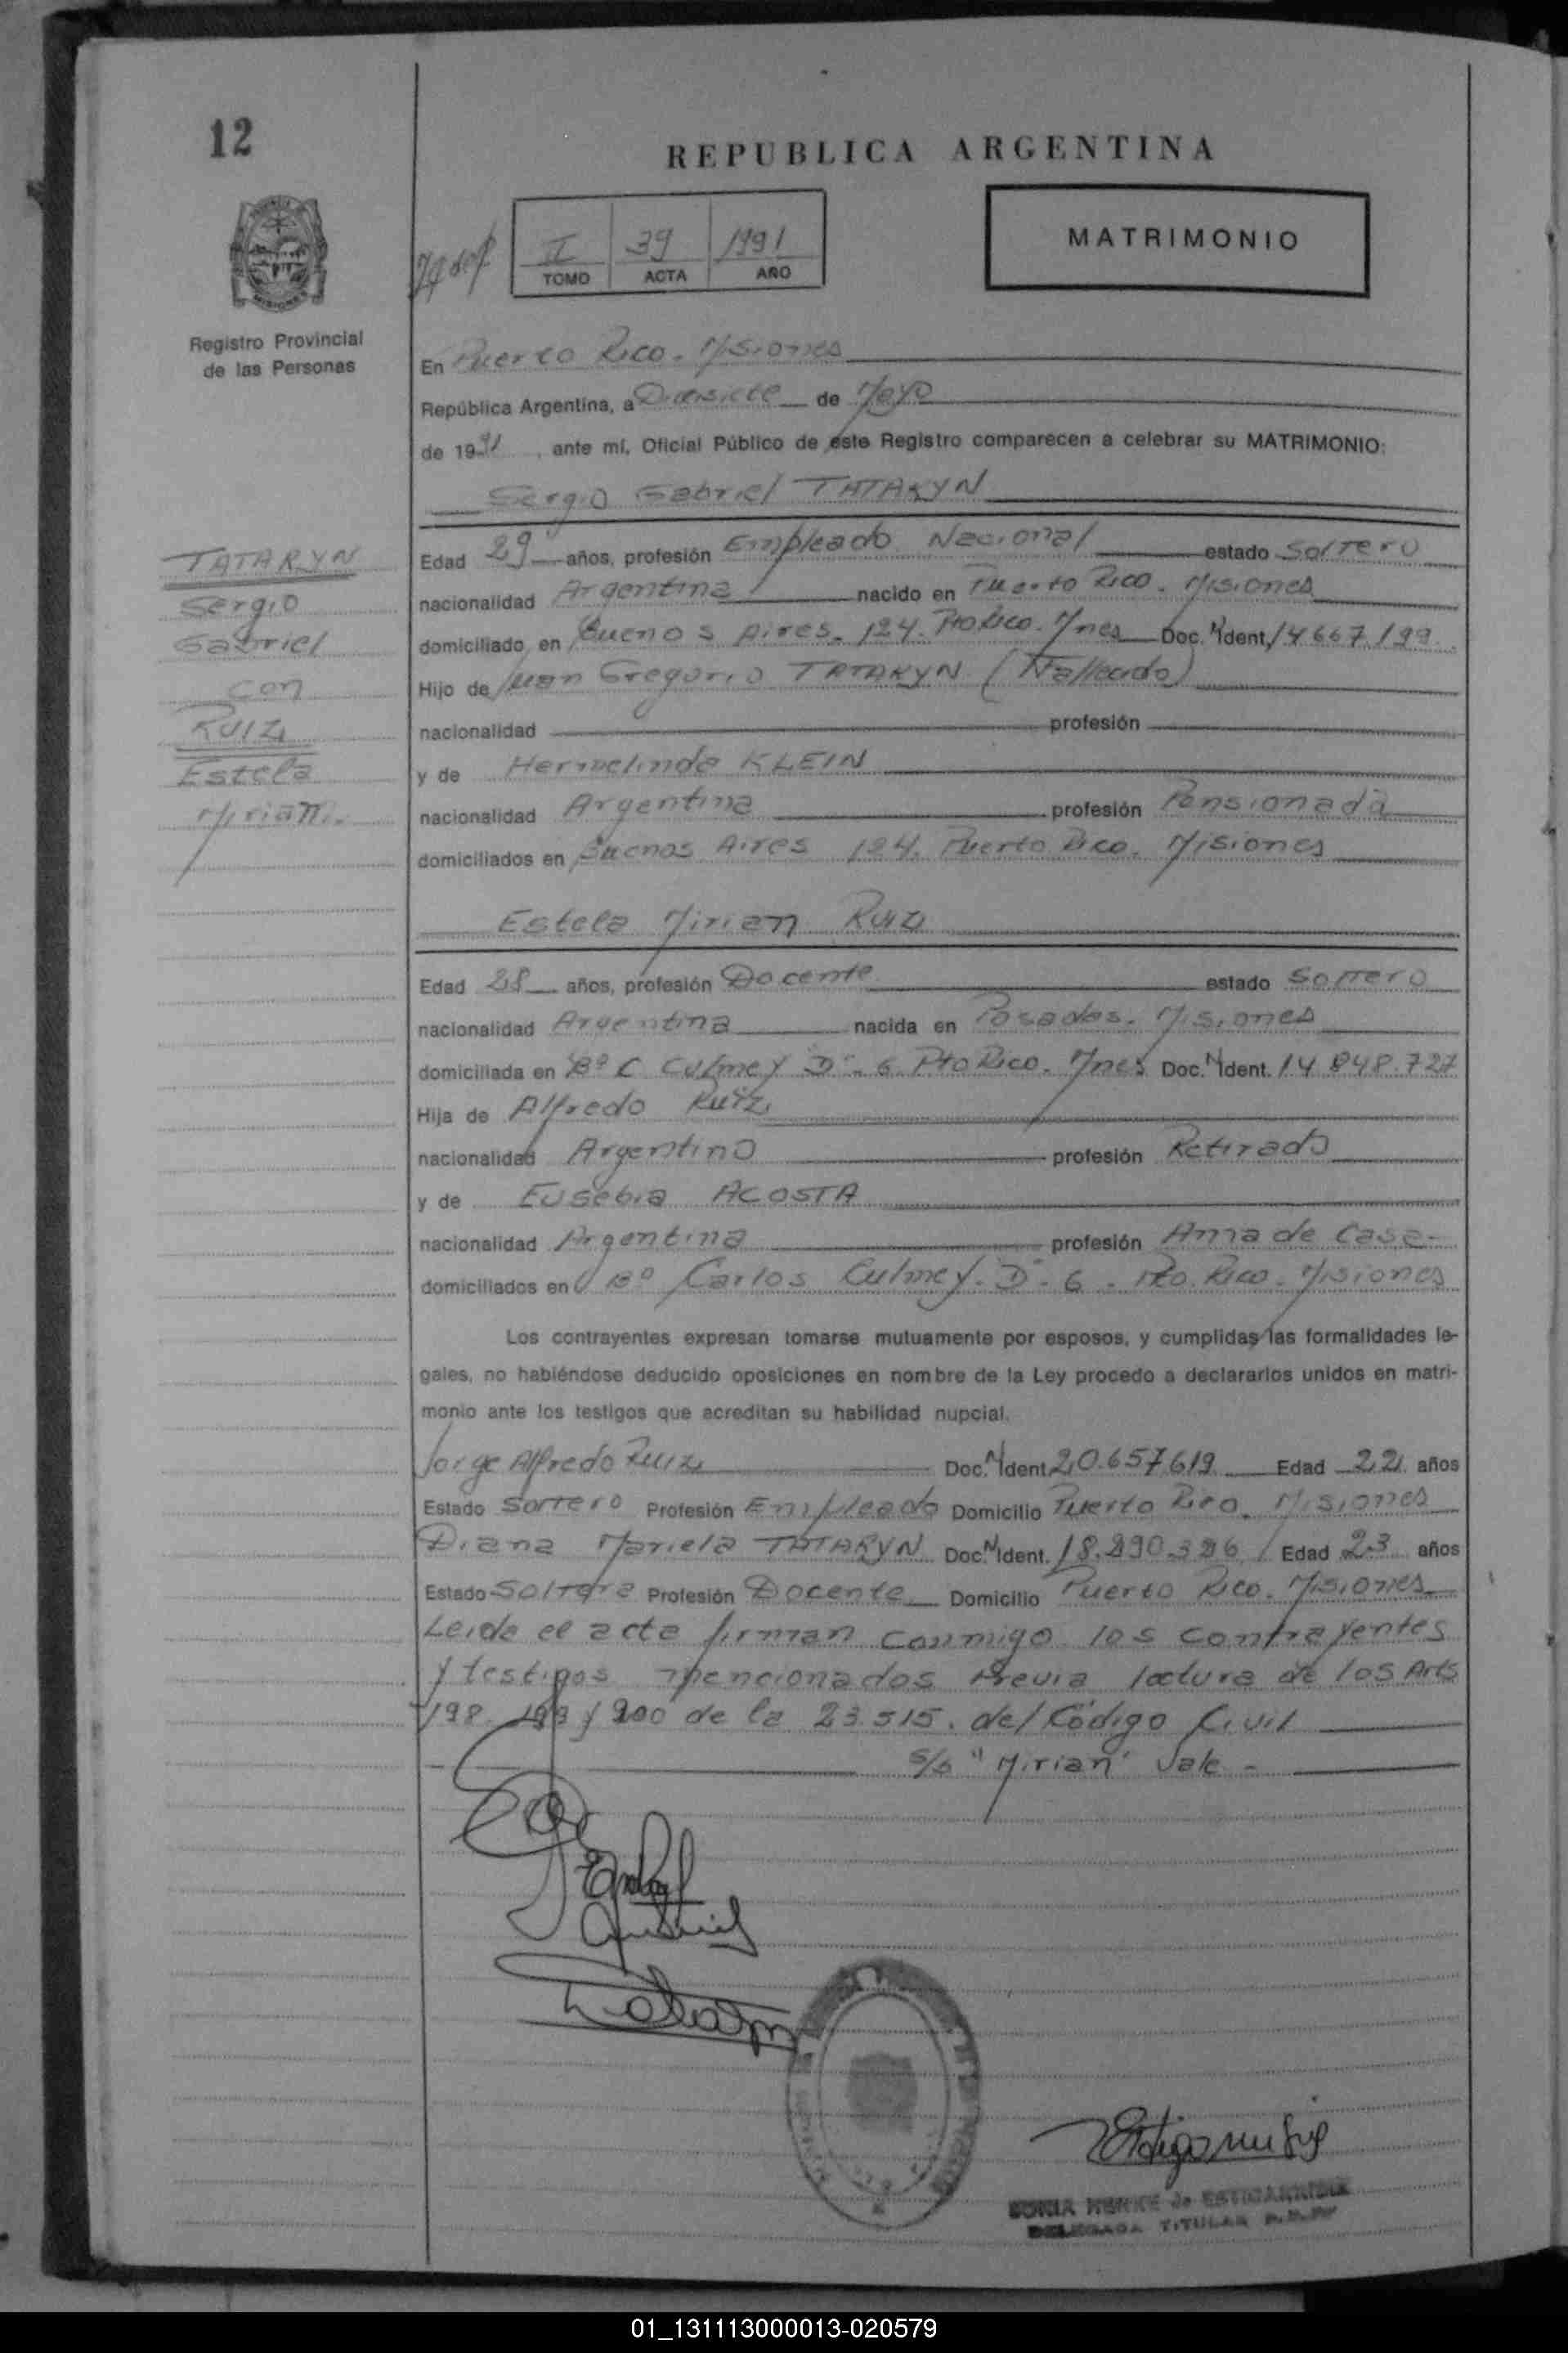 12
REPUBLICA ARGENTINA
II 39 1991
TOMO ACTA AÑO
MATRIMONIO
Registro Provincial
de las Personas
En Puerto Rico. Misiones
República Argentina, a Diesiete de Mayo
de 1991, ante mí, Oficial Público de este Registro comparecen a celebrar su MATRIMONIO:
Sergio Gabriel TATARYN
TATARYN
Sergio
Gabriel
con
RUIZ
Estela
Miriam.
Edad 29 años, profesión Empleado Nacional estado Soltero
nacionalidad Argentina nacido en Puerto Rico. Misiones
domiciliado en Buenos Aires. 124. Pto Rico. Mnes Doc. N Ident. 14667199
Hijo de Juan Gregorio TATARYN (Fallecido)
nacionalidad profesión
y de Hermelinda KLEIN
nacionalidad Argentina profesión Pensionada
domiciliados en Buenos Aires 124. Puerto Rico. Misiones
Estela Mirian Ruiz
Edad 28 años, profesión Docente estado Soltero
nacionalidad Argentina nacida en Posadas. Misiones
domiciliada en Bº C Culmey "D"- 6 Pto Rico. Mnes Doc. N Ident. 14 848.727
Hija de Alfredo Ruiz
nacionalidad Argentino profesión Retirado
y de Eusebia ACOSTA
nacionalidad Argentina profesión Ama de Casa-
domiciliados en Bº Carlos Culmey. "D"- 6 - Pto. Rico. Misiones
Los contrayentes expresan tomarse mutuamente por esposos, y cumplidas las formalidades le-
gales, no habiéndose deducido oposiciones en nombre de la Ley procedo a declararlos unidos en matri-
monio ante los testigos que acreditan su habilidad nupcial.
Jorge Alfredo Ruiz Doc. N Ident. 20.657.619 Edad 22 años
Estado Soltero Profesión Empleado Domicilio Puerto Rico. Misiones
Diana Mariela TATARYN Doc. N Ident. 18.890.396 Edad 23 años
Estado Soltera Profesión Docente Domicilio Puerto Rico. Misiones
Leida el acta firman conmigo los contrayentes
y testigos mencionados Previa lectura de los Arts
198. 199 y 200 de la 23.515. del Código Civil
S/b "Mirian" Vale -
SONIA HENKE de ESTIGARRIBIA
DELEGADA TITULAR
01_131113000013-020579